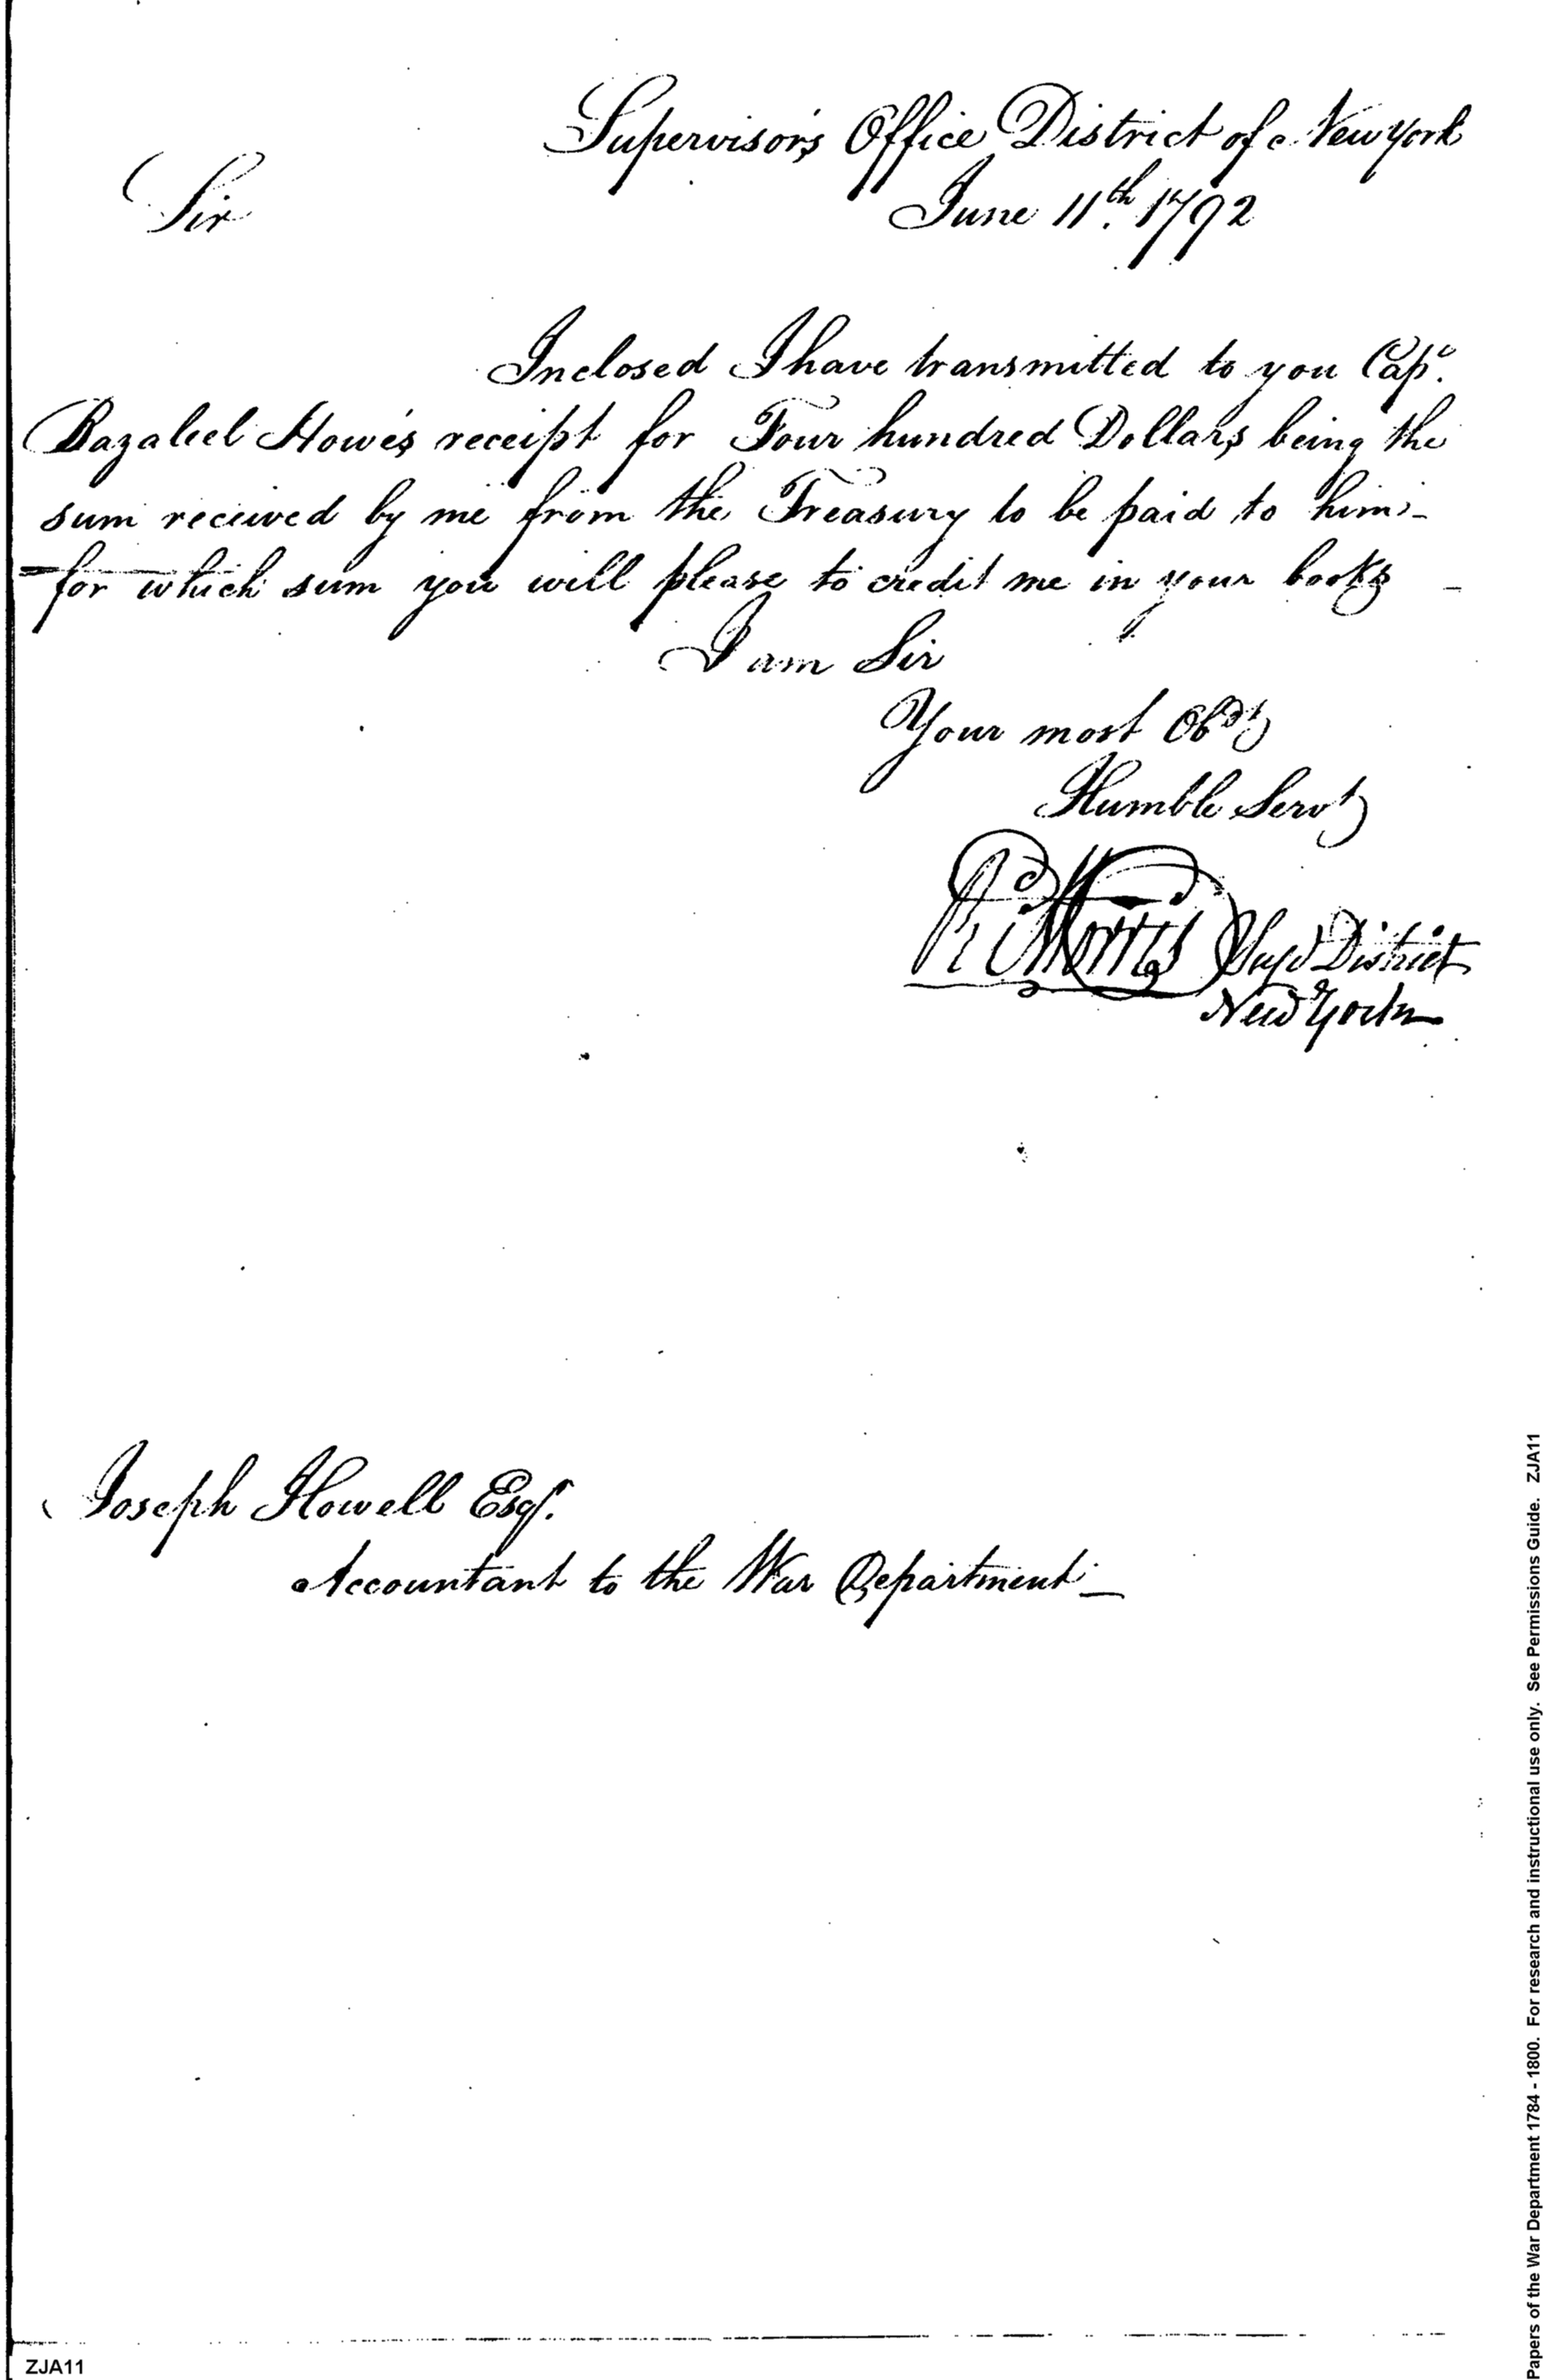 Supervisor's Office District of New York
June 11th. 1792
Sir
Inclosed I have transmitted to you Capt.
Bazaleel Howe's receipt for Four hundred Dollars being the
sum received by me from the Treasury to be paid to him -
for which sum you will please to credit me in your books -
I am Sir
Your most Obdt
Humble Servt
Ri Morris Supr District
New York
Joseph Howell Esqr.
Accountant to the War Department -
ZJA11
Papers of the War Department 1784 - 1800. For research and instructional use only. See Permissions Guide. ZJA11